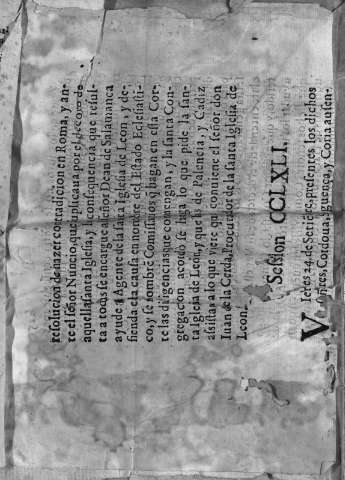 resolucion de hazer contradicion en Roma, y an-
te el señor Nuncio, que suplicaua por el decoro de
aquella santa Iglesia, y la consequencia que resul-
ta a todas se encargue al señor Dean de Salamanca
ayude al Agente de la santa Iglesia de Leon, y de-
fienda esta causa en nombre del Estado Eclesiasti-
co, y se nombre Comissarios q̃ hagan en esta Cor-
te las diligencias que conuengan, y la santa Con-
gregacion acordò se haga lo que pide la san-
ta Iglesia de Leon, y que los de Palencia, y Cadiz
assistan a lo que viere que conuiene el señor don
Iuan de la Cerda, Procurador de la santa Iglesia de
Leon.
Session CCLXLI.
Vieres 24. de Setiẽbre, presentes los dichos
señores, Cordoua, Siguença, y Coria ausen-